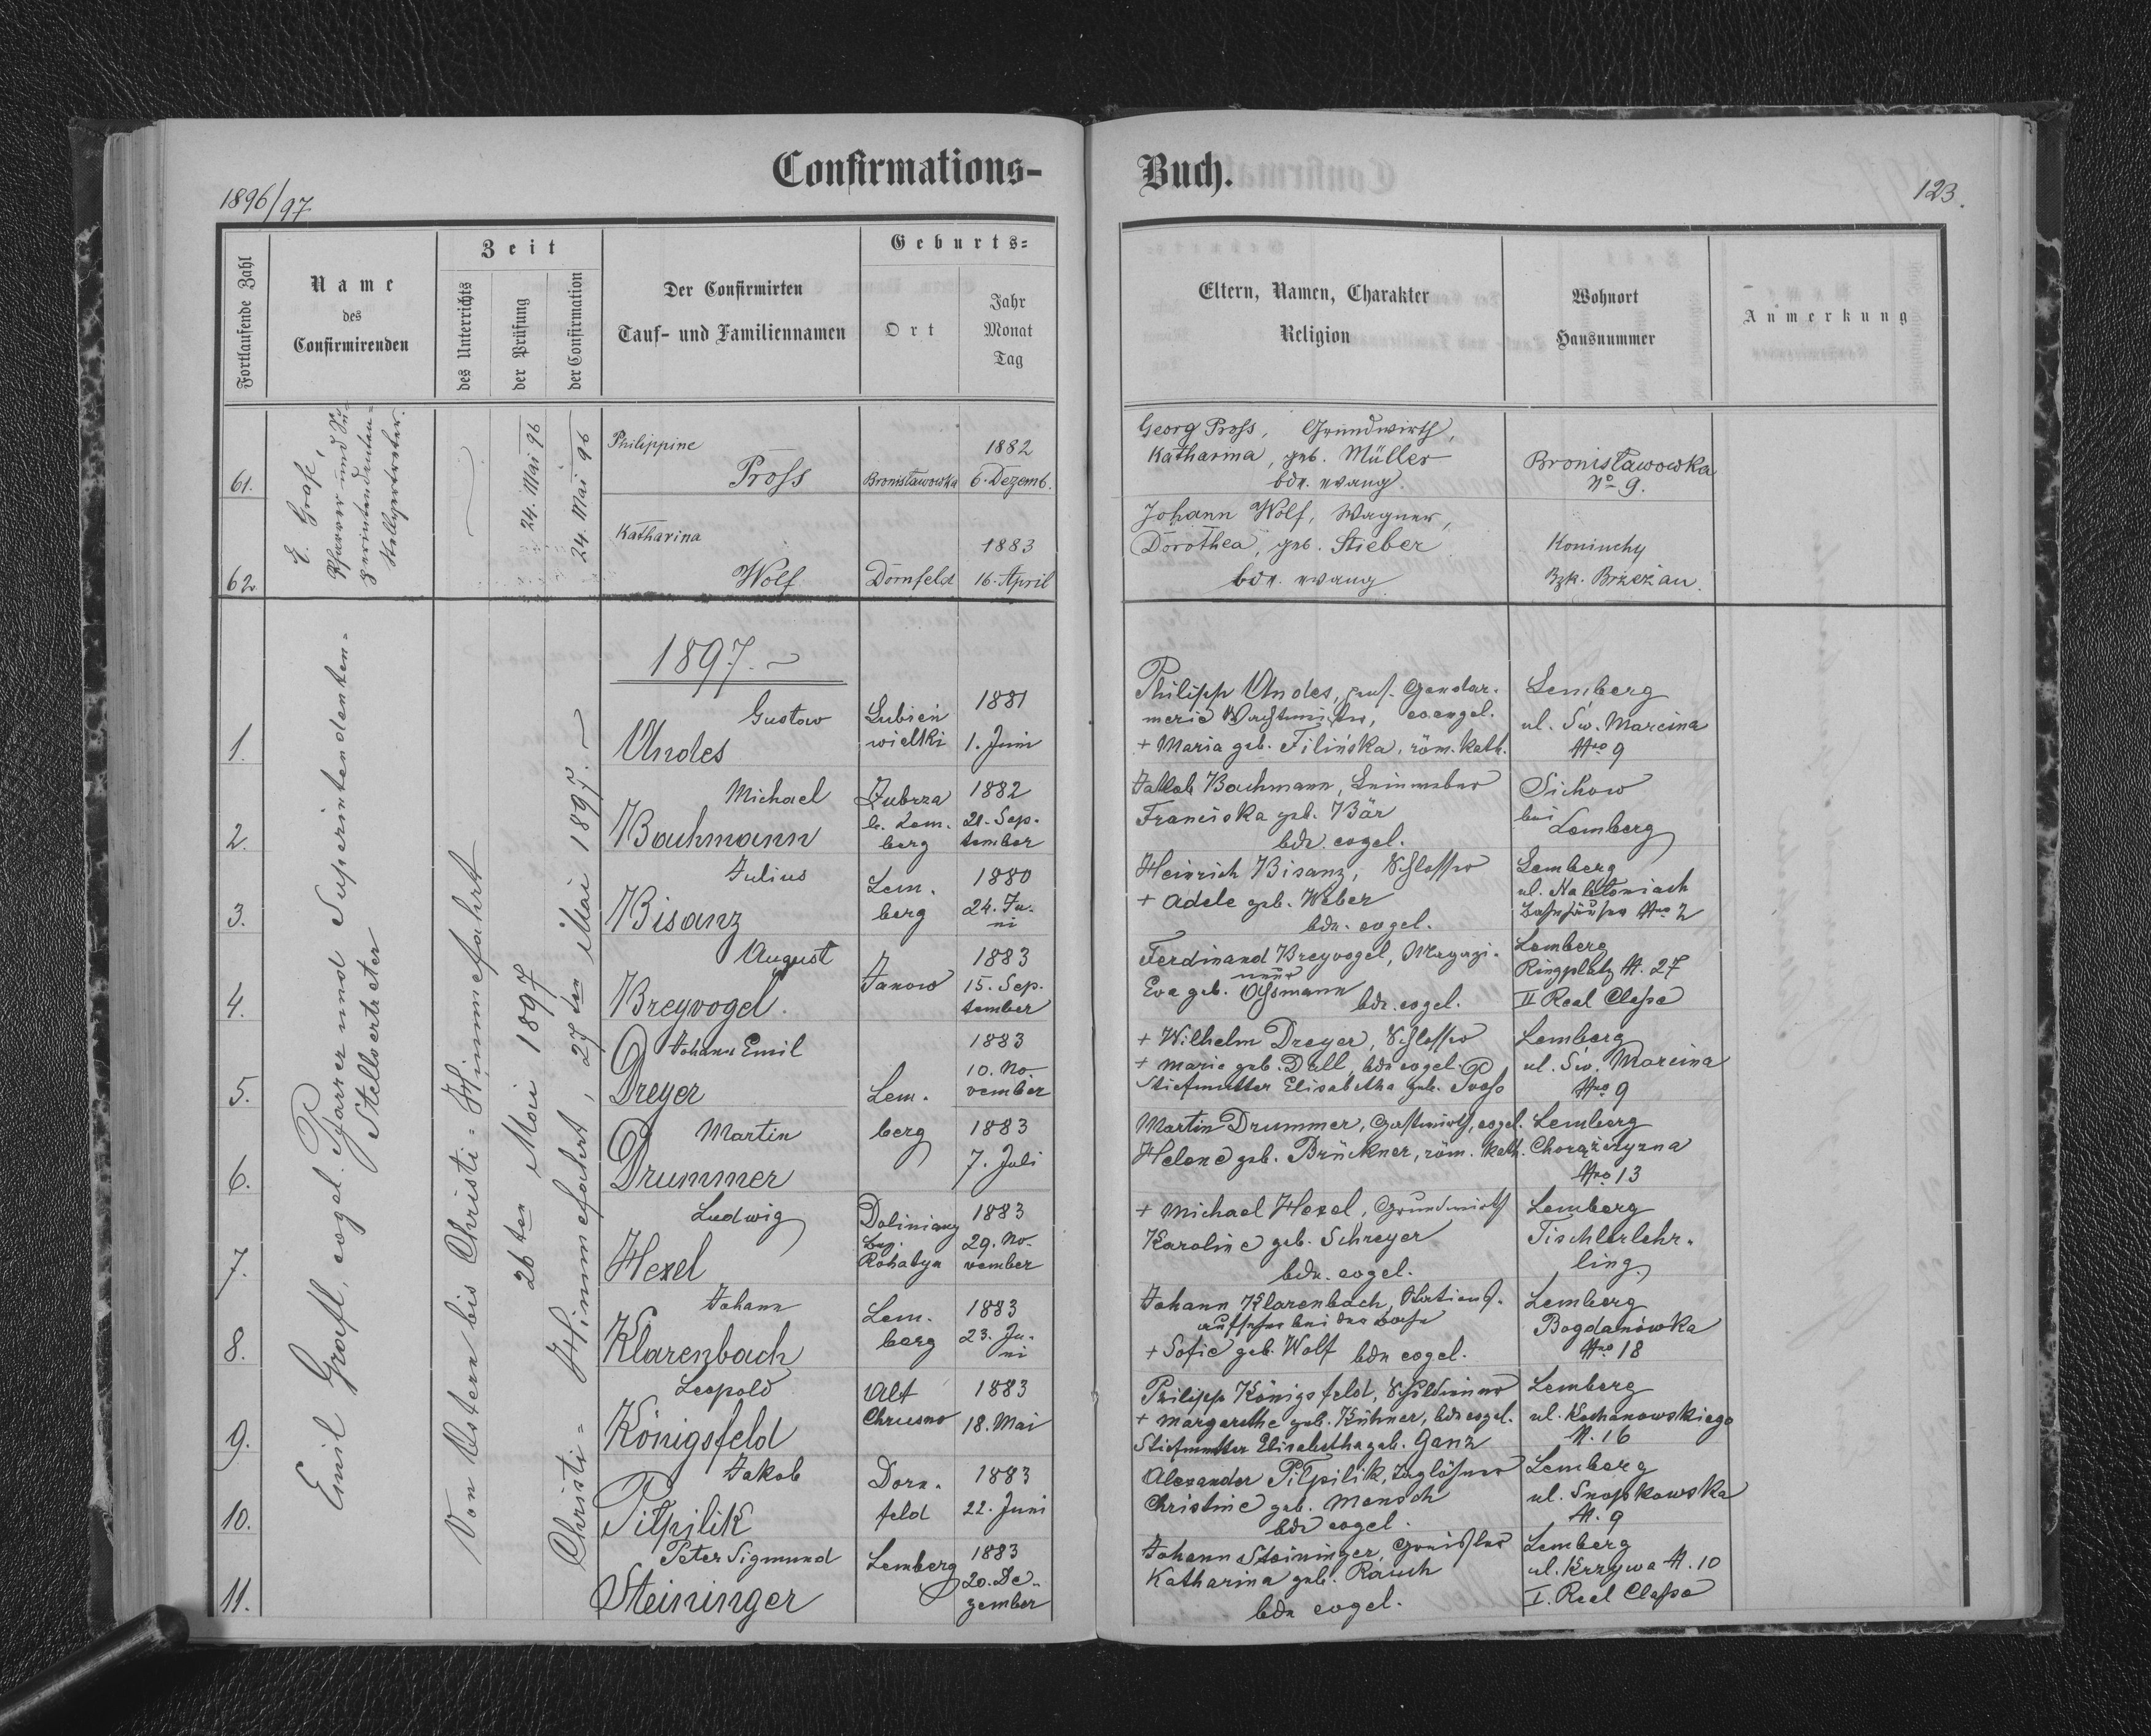 Confirmations-
Buch.
1896/97
123.
Fortlaufende Zahl
Name
des
Confirmirenden
Zeit
des Unterrichts
der Prüfung
der Confirmation
Der Confirmirten
Tauf- und Familiennamen
Geburts-
Ort
Jahr
Monat
Tag
Eltern, Namen, Charakter
Religion
Wohnort
Hausnummer
Anmerkung
E. Grafl,
Pfarrer und Su-
perintendenten-
Stellvertreter.
24. Mai 96
24. Mai 96
61.
Philippine
Pross
Bronisławowka
1882
6. Dezemb.
Georg Pross, Grundwirth,
Katharina, geb. Müller
bde. evang.
Bronisławowka
No 9.
62.
Katharina
Wolf
Dornfeld
1883
16. April
Johann Wolf, Wagner,
Dorothea, geb. Stieber
bde. evang.
Koniuchy
Bzk. Brzeżan.
1897.
Emil Grafl, evgel. Pfarrer und Superintendenten-
Stellvertreter
Von Ostern bis Christi-Himmelfahrt
26ten Mai 1897
Christi-Himmelfahrt, 27ten Mai 1897.
1.
Gustav
Andes
Lubień
wielki
1881
1. Juni
Philipp Andes, pens. Gendar-
merie Wachtmeister, evangel.
+ Maria geb. Filińska, röm. kath.
Lemberg
ul. Św. Marcina
Nro 9
2.
Michael
Bachmann
Zubrza
b. Lem-
berg
1882
21. Sep-
tember
Jakob Bachmann, Leinweber
Franciska geb. Bär
bde. evgel.
Sichow
bei
Lemberg
3.
Julius
Bisanz
Lem-
berg
1880
24. Ju-
ni
Heinrich Bisanz, Schlosser
+ Adele geb. Weber
bde. evgel.
Lemberg
ul. Na błoniach
Bahnhäuser Nro 2
4.
August
Breyvogel
Janow
1883
15. Sep-
tember
Ferdinand Breyvogel, Magazi-
neur
Eva geb. Ochsmann bde. evgel.
Lemberg
Ringplatz N. 27
II Real Classe
5.
Johann Emil
Dreyer
Lem-
1883
10. No-
vember
+ Wilhelm Dreyer, Schlosser
+ Marie geb. Dall, bde evgel.
Stiefmutter Elisabetha geb. Pross
Lemberg
ul. Św. Marcina
Nro 9
6.
Martin
Drummer
berg
1883
7. Juli
Martin Drummer, Gastwirth, evgel.
Helene geb. Brückner, röm. kath.
Lemberg
Chorążczyzna
Nro 13
7.
Ludwig
Hexel
Doliniany
Bez.
Rohatyn
1883
29. No-
vember
+ Michael Hexel, Grundwirth
Karoline geb. Schreyer
bde. evgel.
Lemberg
Tischlerlehr-
ling.
8.
Johann
Klarenbach
Lem-
berg
1883
23. Ju-
ni
Johann Klarenbach, Stations-
aufseher bei der Bahn
+ Sofie geb. Wolf bde evgel.
Lemberg
Bogdanówka
Nro 18
9.
Leopold
Königsfeld
Alt
Chrusno
1883
18. Mai
Philipp Königsfeld, Schuldiener
+ Margarethe geb. Kühner, bde evgel.
Stiefmutter Elisabetha geb. Ganz
Lemberg
ul. Kochanowskiego
N. 16
10.
Jakob
Pilpilik
Dorn-
feld
1883
22. Juni
Alexander Pilpilik, Taglöhner
Christine geb. Mensch
bde evgel.
Lemberg
ul. Snopkowska
N. 9
11.
Peter Sigmund
Steininger
Lemberg
1883
20. De-
zember
Johann Steininger, Greissler
Katharina geb. Rauch
bde evgel.
Lemberg
ul. Krzywa N. 10
I. Real Classe